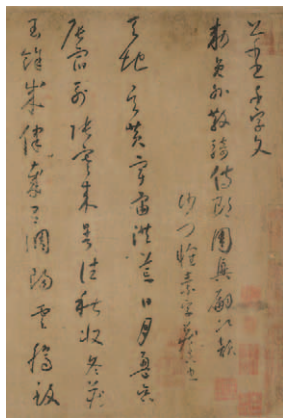 千字文
敕員外散騎侍郎周興嗣次韻
沙門懷素字藏真書
天地玄黃宇宙洪荒日月盈昃
辰宿列張寒來暑往秋收冬藏
閏餘成歲律呂調陽雲騰致